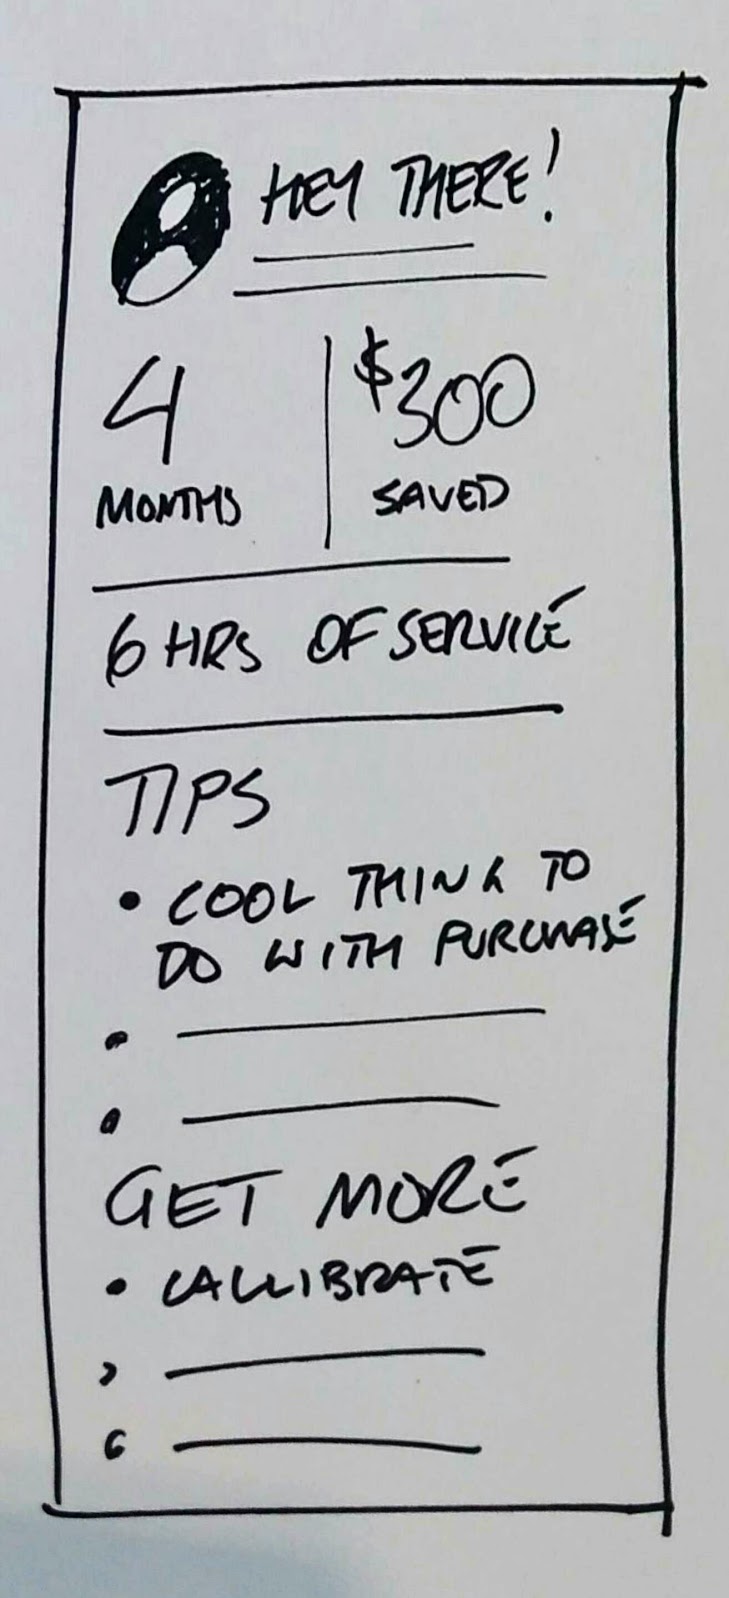 HEY THERE!
4
MONTHS
$300
SAVED
6 HRS OF SERVICE
TIPS
• COOL THING TO
DO WITH PURCHASE
•
•
GET MORE
• CALLIBRATE